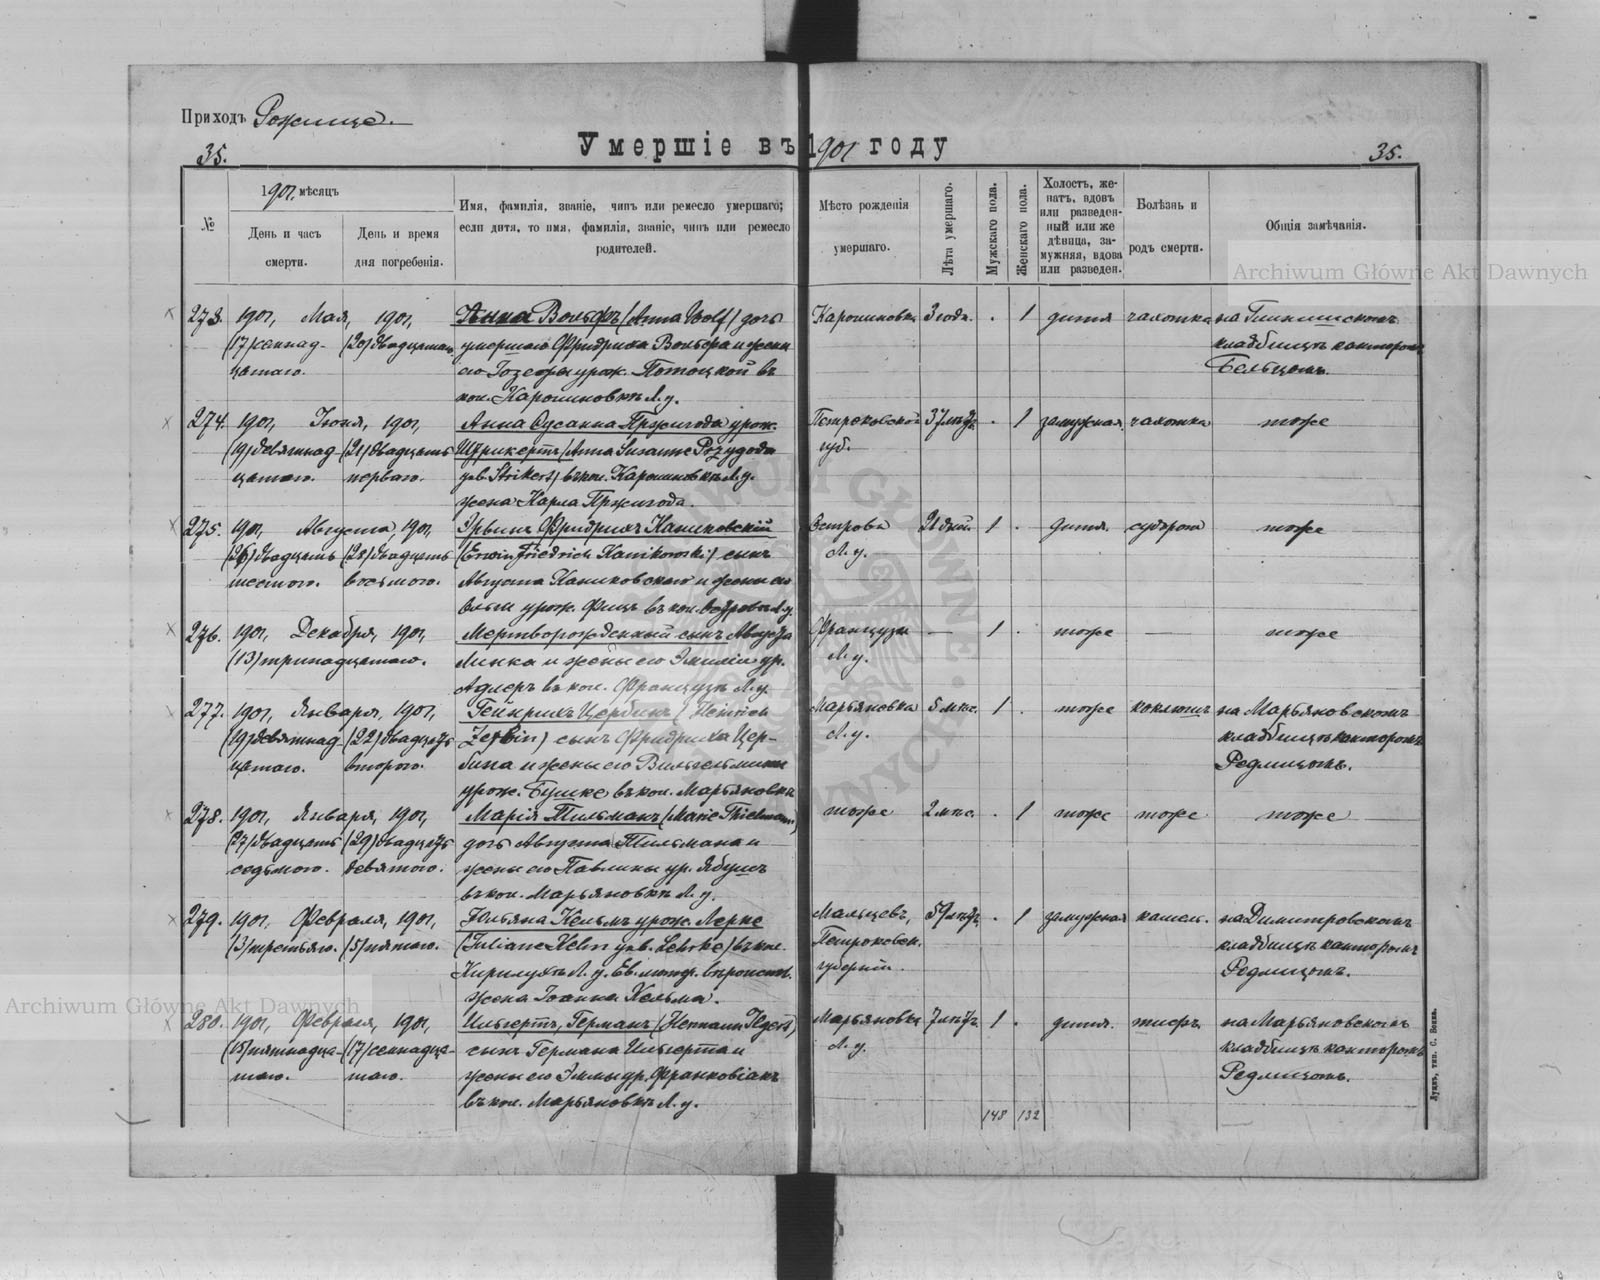 Приходъ Рожище.
35.
Умершіе въ 1901 году
35.
№
1901, мѣсяцъ
День и часъ смерти.
День и время дня погребенія.
Имя, фамилія, званіе, чинъ или ремесло умершаго;
если дитя, то имя, фамилія, званіе, чинъ или ремесло
родителей.
Мѣсто рожденія
умершаго.
Лѣта умершаго.
Мужскаго пола.
Женскаго пола.
Холостъ, же-
натъ, вдовъ
или разведен-
ный или же
дѣвица, за-
мужняя, вдова
или разведен.
Болѣзнь и
родъ смерти.
Общія замѣчанія.
Archiwum Główne Akt Dawnych
273. 1901, Мая, 1901, Анна Вольфъ (Anna Wolf) дочь Каролиновка 3 года. . 1 дитя чахотка на
(17) семнад- (20) двадцатаго умершаго Фридриха Вольфа и жены кладбищѣ канторомъ
цатаго. его Іозефы урож. Потоцкой въ Бельцомъ.
кол. Каролиновкѣ Л. у.
274. 1901, Іюня, 1901, Анна Сусанна Пржигода урож. Петроковской 37 лѣтъ. . 1 замужная. чахотка тоже
(19) девятнад (21) двадцать Штрикертъ (Anna Susanne Przygoda губ.
цатаго. перваго. geb. Strikert) въ кол. Каролиновкѣ Л. у.
жена Карла Пржигода.
275. 1901, Августа, 1901, Эрвинъ Фридрихъ Каниковскій Острова 21 дней. 1 . дитя. судорога тоже
(26) двадцать (28) двадцать (Erwin Friedrich Kanikowski) сынъ Л. у.
шестого. восьмого. Августа Каниковскаго и жены его
Ольги урож. Фицъ въ кол. Островѣ Л. у.
276. 1901, Декабря, 1901, Мертворожденный сынъ Августа Французы — 1 . тоже — тоже
(13) тринадцатаго. Линка и жены его Эмиліи ур. Л. у.
Адлеръ въ кол. Французѣ Л. у.
277. 1901, Января, 1901, Гейнрихъ Цербинъ (Heinrich Марьяновка 5 мѣс. 1 . тоже коклюшъ на Марьяновскомъ
(19) девятнад (22) двадцать Zerbin) сынъ Фридриха Цер- Л. у. кладбищѣ канторомъ
цатаго. второго. бина и жены его Вильгельмины Редлицомъ.
урож. Бушке въ кол. Марьяновкѣ
278. 1901, Января, 1901, Марія Тильманъ (Marie Thielmann) тоже 2 мѣс. . 1 тоже тоже тоже
(27) двадцать (29) двадцать дочь Августа Тильмана и
седьмого. девятого. жены его Павлины ур. Ябушъ
въ кол. Марьяновкѣ Л. у.
279. 1901, Февраля, 1901, Юльяна Кельмъ урож. Лерке Мальцевъ, 59 лѣтъ . 1 замужная кашель. на Димитровскомъ
(3) третьяго. (5) пятаго. (Juliane Kelm geb. Lehrke) въ кол. Петроковск. кладбищѣ канторомъ
Л. у. Ев. лютер. вѣроисп. губерніи. Редлицомъ.
жена Іоанна Кельма.
Archiwum Główne Akt Dawnych
280. 1901, Февраля, 1901, Ильгертъ, Германъ (Hermann Ilgert) Марьяновка 7 лѣтъ. 1 . дитя. тифъ на Марьяновскомъ
(15) пятнадца- (17) семнадца- сынъ Германа Ильгерта и Л. у. кладбищѣ канторомъ
таго. таго. жены его Эммы ур. Франковіакъ Редлицомъ.
въ кол. Марьяновкѣ Л. у.
148 132
Луцкъ, тип. С. Бонка.